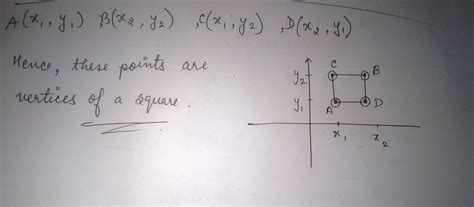 A(x₁, y₁) B(x₂, y₂) , C(x₁, y₂) , D(x₂, y₁)
Hence, these points are
vertices of a square.
C
y₂ B
y₁ D
A
x₁ x₂